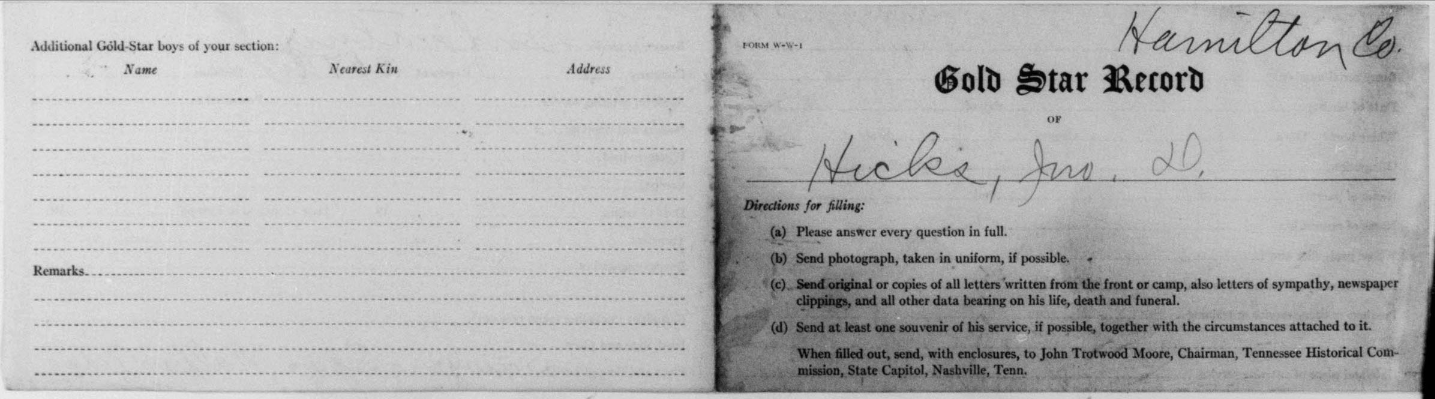 Additional Gold-Star boys of your section:
Name Nearest Kin Address
Remarks
FORM W-W-1
Hamilton Co.
Gold Star Record
OF
Hicks, Jno. D.
Directions for filling:
(a) Please answer every question in full.
(b) Send photograph, taken in uniform, if possible.
(c) Send original or copies of all letters written from the front or camp, also letters of sympathy, newspaper
clippings, and all other data bearing on his life, death and funeral.
(d) Send at least one souvenir of his service, if possible, together with the circumstances attached to it.
When filled out, send, with enclosures, to John Trotwood Moore, Chairman, Tennessee Historical Com-
mission, State Capitol, Nashville, Tenn.